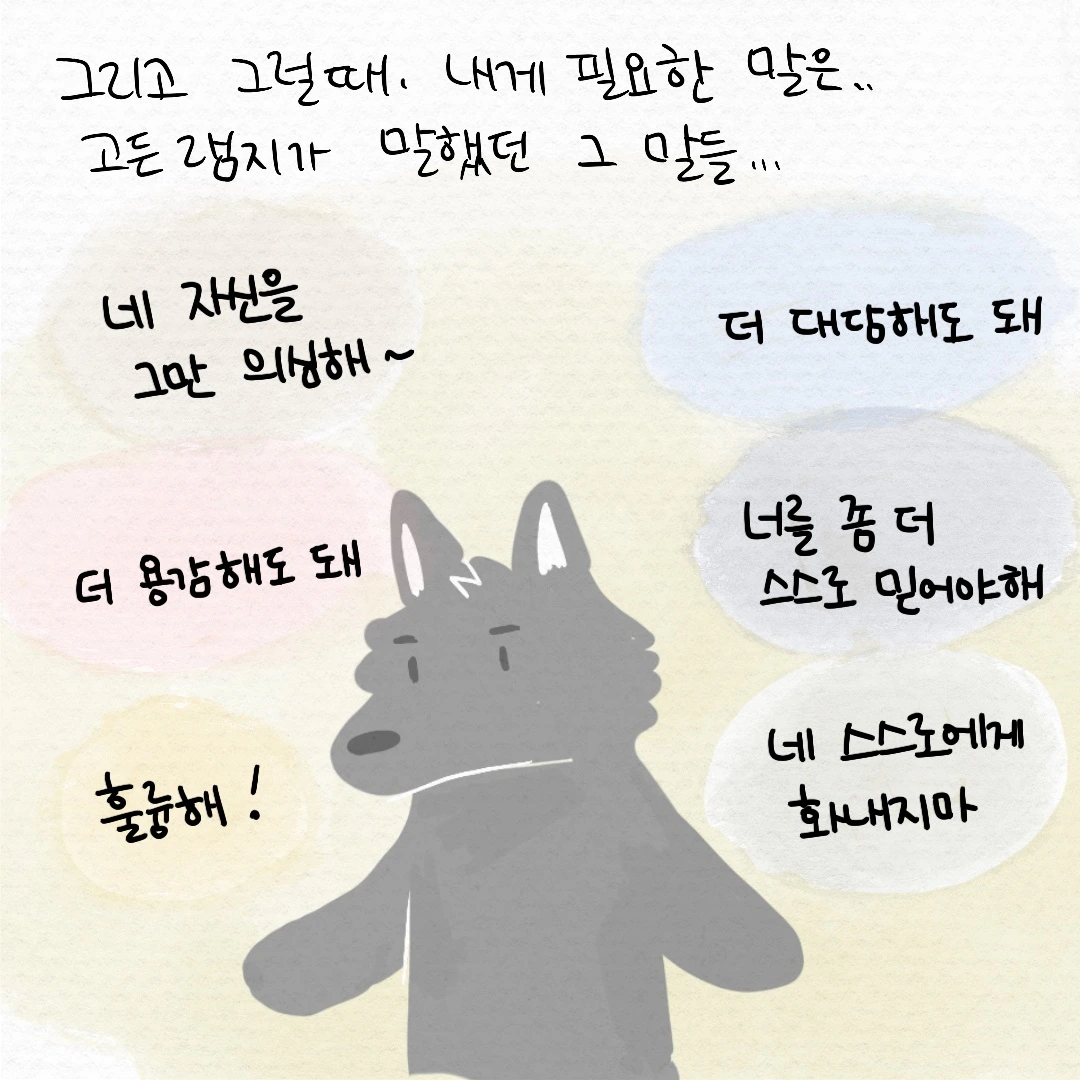 그리고 그럴때. 내게 필요한 말은..
고든 램지가 말했던 그 말들...
네 자신을
그만 의심해~
더 대담해도 돼
더 용감해도 돼
너를 좀 더
스스로 믿어야해
훌륭해!
네 스스로에게
화내지마